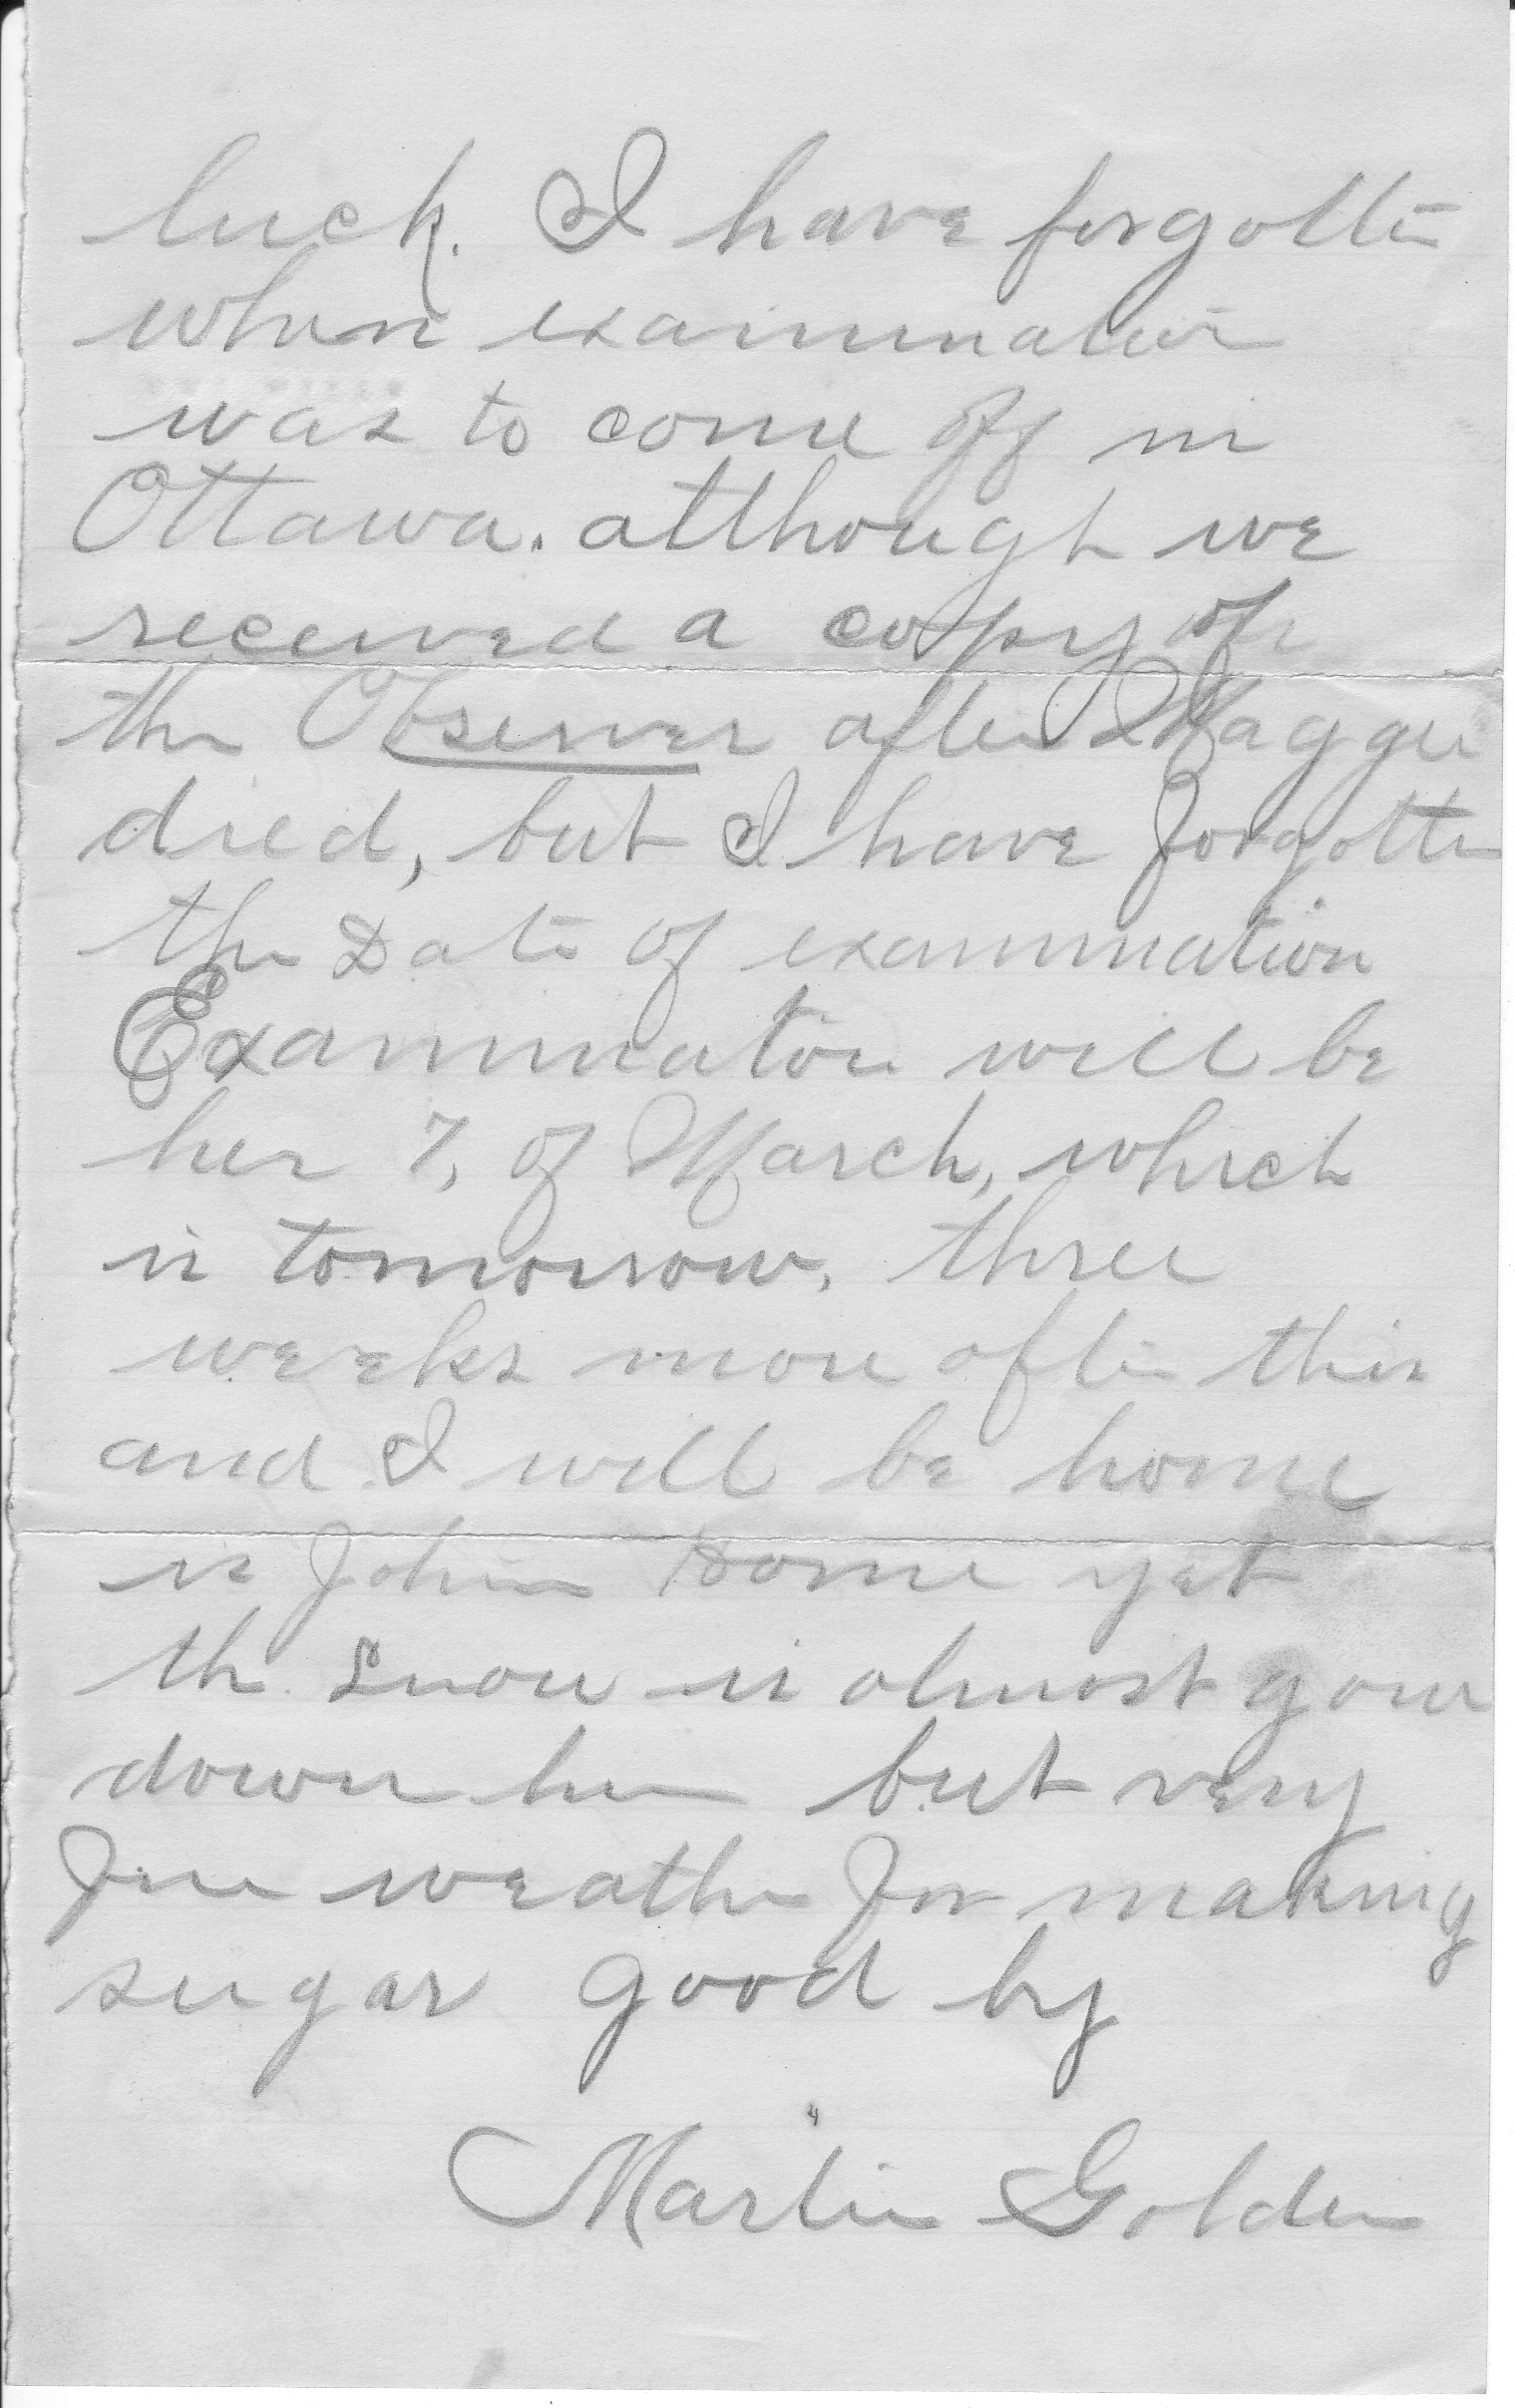 luck. I have forgotten
when examination
was to come off in
Ottawa. although we
received a copy of
the Observer after Maggie
died, but I have forgotten
the Date of examination
Examination will be
her 7, of March, which
is tomorrow. three
weeks more after this
and I will be home
is John home yet
the snow is almost gone
down here but very
fine weather for making
sugar good by
Martin Golden